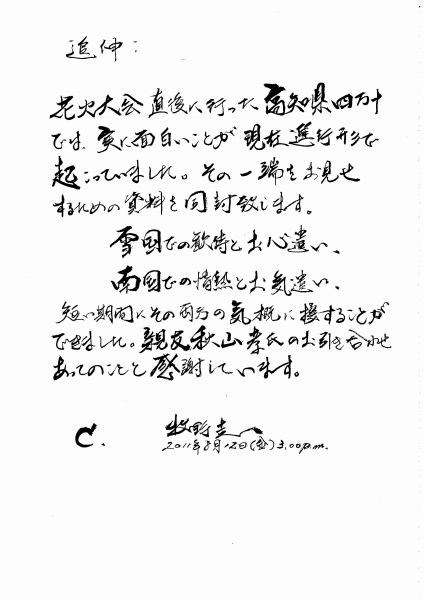 追伸：
花火大会直後に行った高知県四万十
では、実に面白いことが現在進行形で
起こっていました。その一端をお見せ
するための資料を同封致します。
雪国での歓待とお心遣い、
南国での情熱とお気遣い、
短い期間にその両方の気概に接することが
できました。親友秋山孝氏のお引き合わせ
あってのことと感謝しています。
C. 牧野圭一
2011年8月12日(金)3.00p.m.